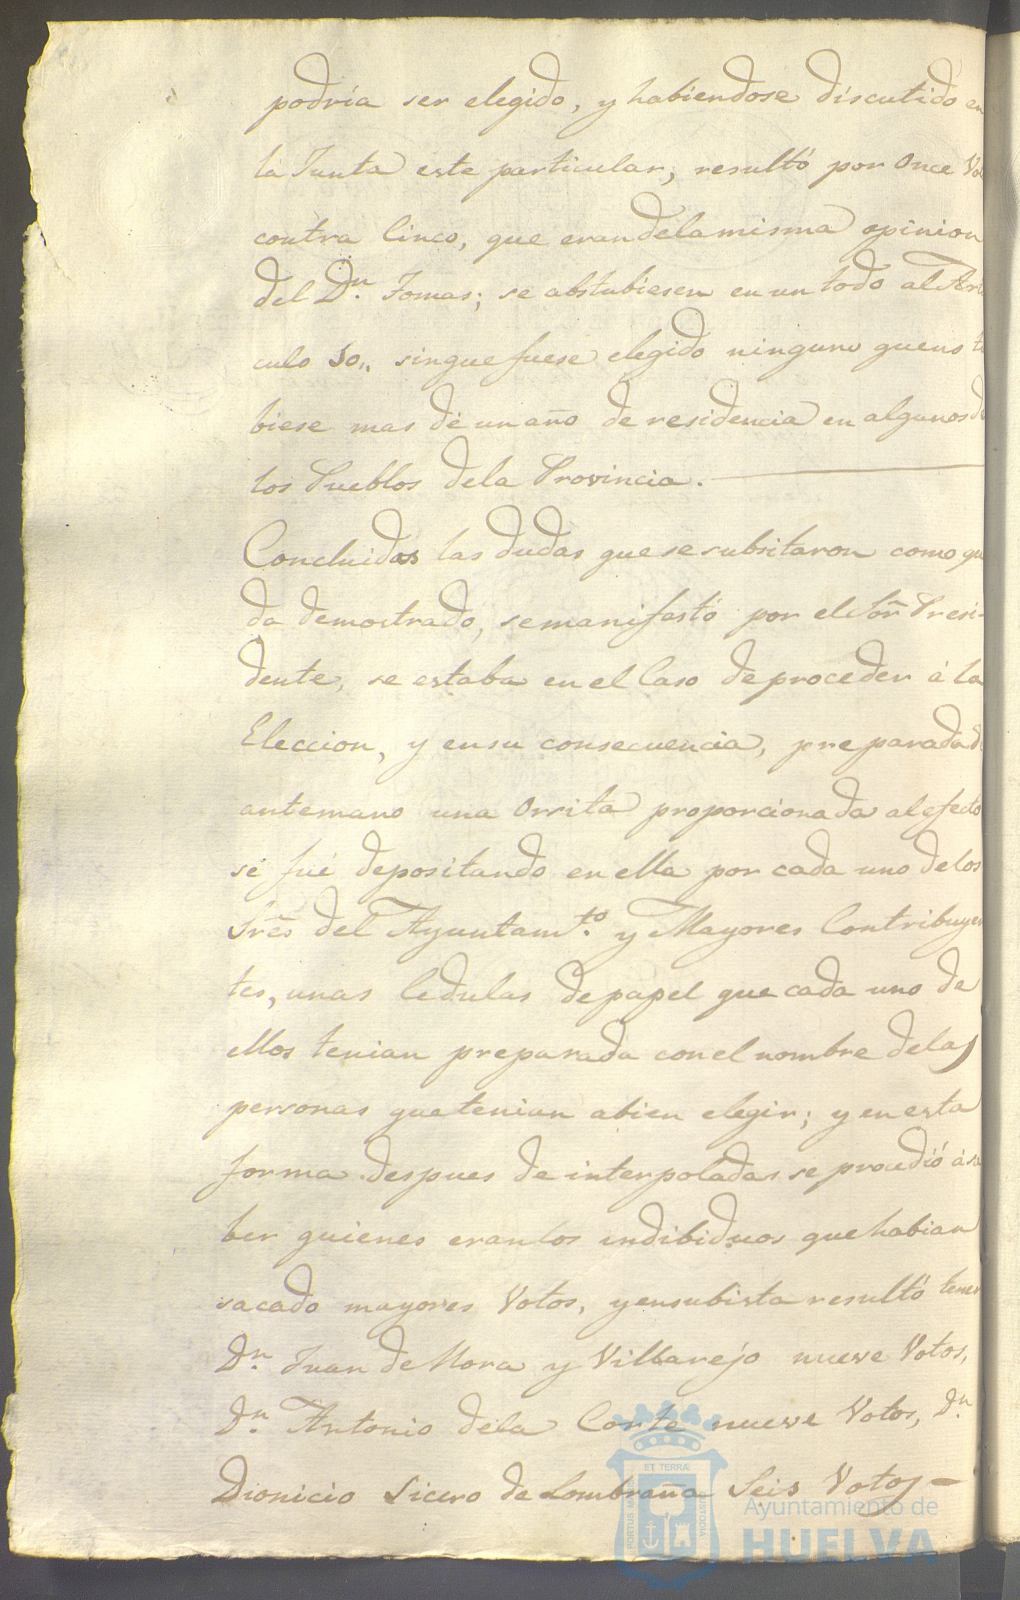 podria ser elegido, y habiendose discutido en
la Junta este particular, resultó por Once Vo
contra Cinco, que eran dela misma opinion
del Dn. Tomas; se abstubiesen en un todo al Arti
culo 10,, sin que fuese elegido ninguno que no tu
biese mas de un año de residencia en algunos de
los Pueblos dela Provincia.
Concluidas las dudas que se subsitaron como que
da demostrado, se manifestó por el Sor. Presi-
dente, se estaba en el Caso de proceder á la
Eleccion, y en su consecuencia, preparada de
antemano una Orsita proporcionada al efecto
se fué depositando en ella por cada uno de los
Sres del Ayuntamto. y Mayores Contribuyen
tes, unas Cedulas de papel que cada uno de
ellos tenian preparada con el nombre de las
personas que tenian abien elegir; y en esta
forma despues de interpoladas se procedió á sa
ber quienes eran los indibiduos que habian
sacado mayores Votos, y ensubista resultó tener
Dn. Juan de Mora y Villarejo nueve Votos,
Dn. Antonio dela Corte nueve Votos, Dn
Dionicio Sicero de Lombraña Seis Votos
ET TERRÆ
PORTUS MARIS
CUSTODIA
Ayuntamiento de
HUELVA